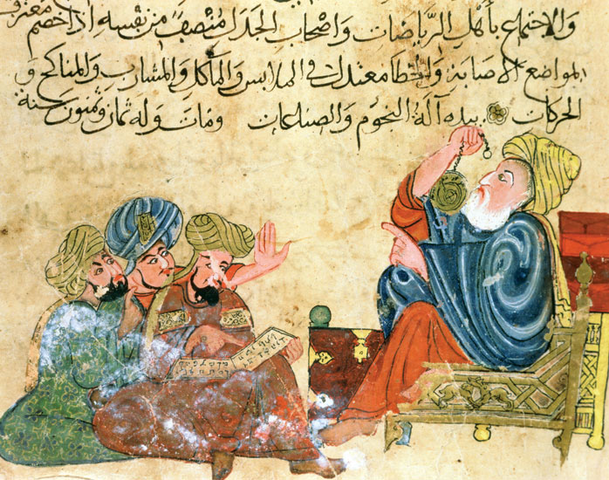 والاجتماع بأهل الرياضات واصحاب الجدل منتصف من نفسه اذا خصم معترف
لمواضع الاصابة والخطا معتدل في الملابس والمآكل والمشارب والمناكح و
الحركات بيده آلة النجوم والصناعات ومات وله ثمان وثمنون سنة